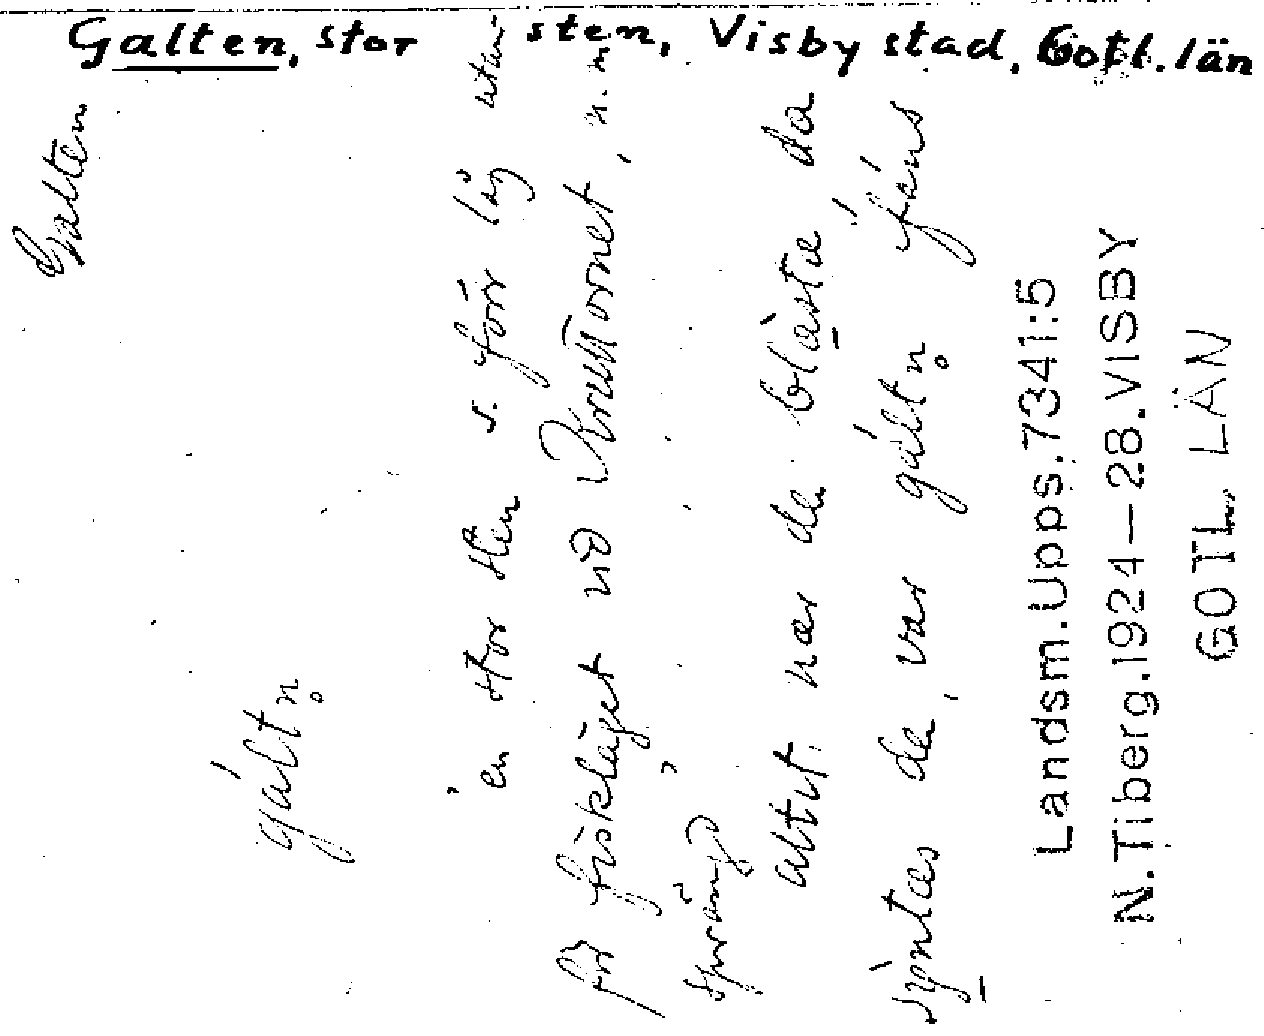 Galten, stor sten, Visby stad, Gotl. län
Galten
gáltn̥
en stor sten s. förr låg utan-
för fiskläget vid Kruttornet, n. m.
sprängd
altit nær de blæste da
syntes de, var gáltn̥ fáns
Landsm. Upps. 7341:5
N. Tiberg. 1924-28. VISBY
GOTL. LÄN